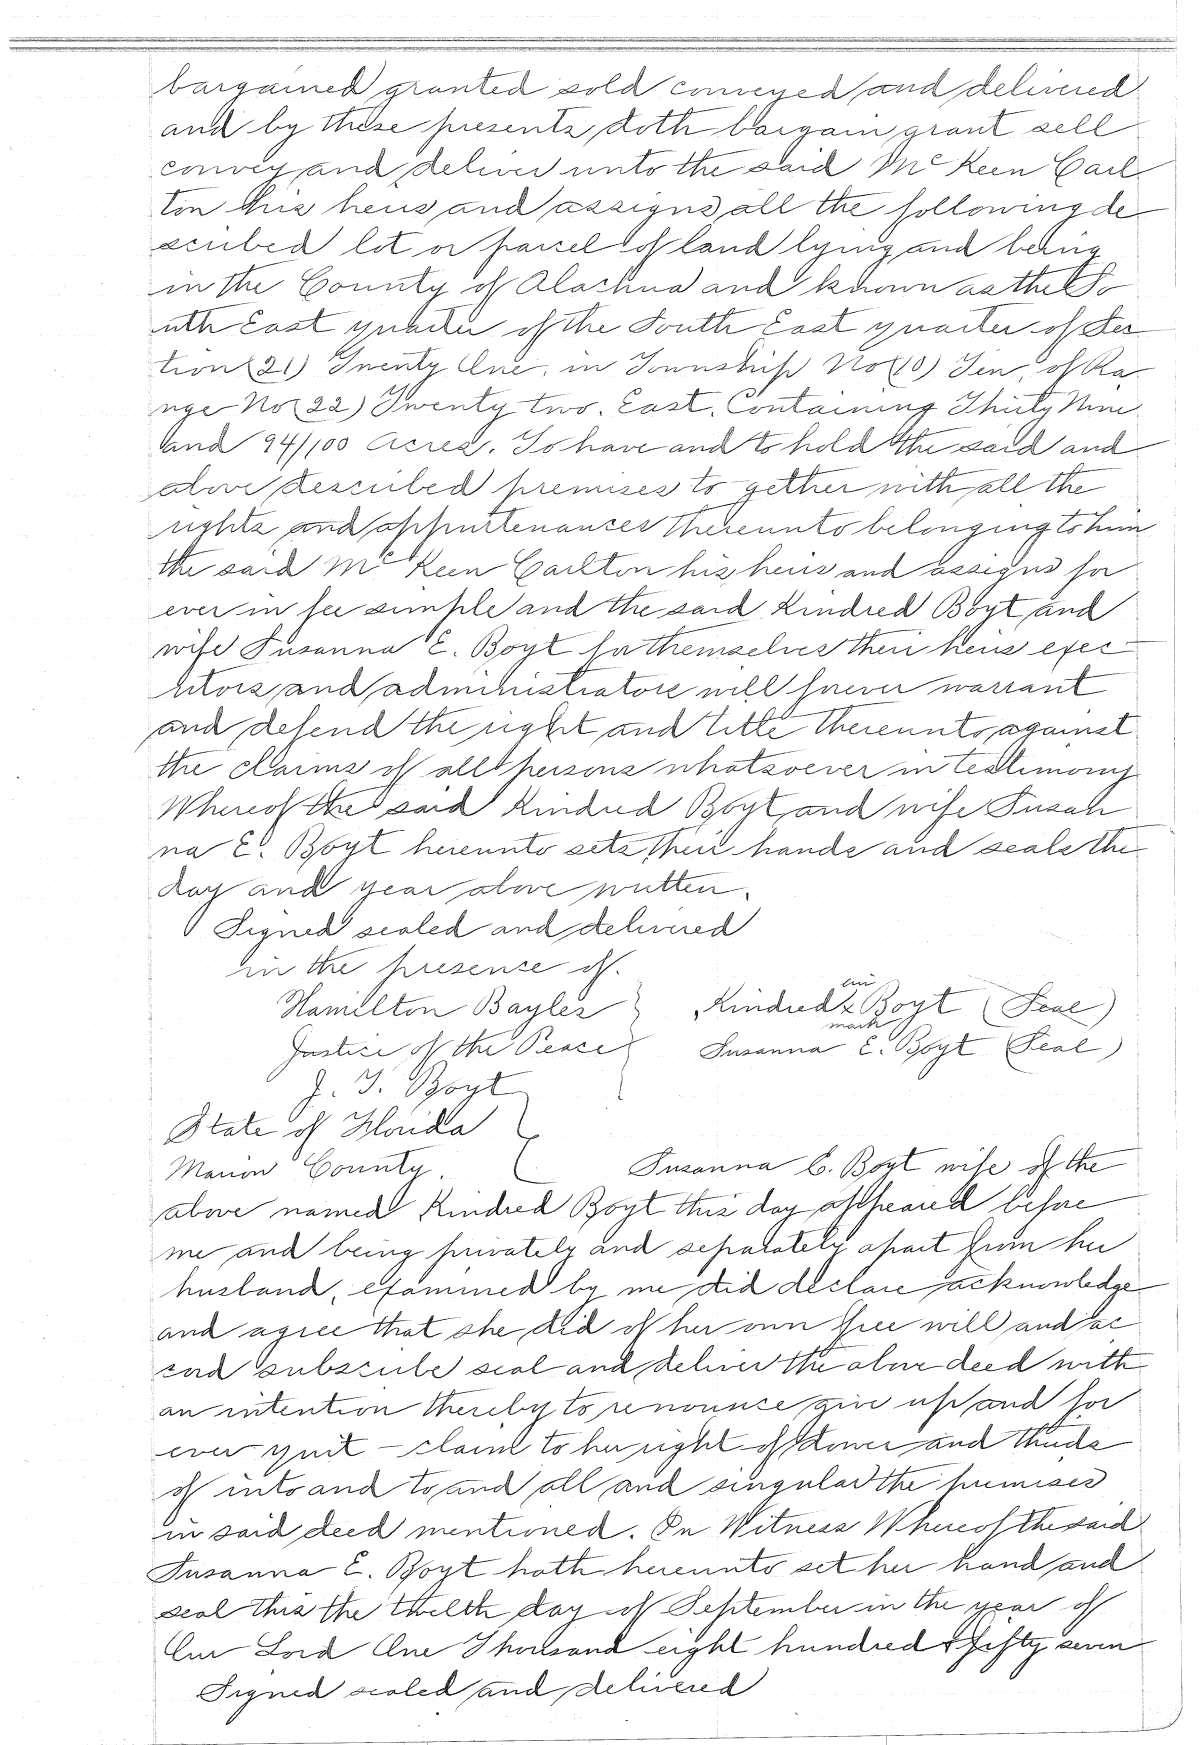 bargained granted sold conveyed and delivered
and by these presents doth bargain grant sell
convey and deliver unto the said Mc Keen Carl
ton his heirs and assigns all the following de
scribed lot or parcel of land lying and being
in the County of Alachua and known as the So
uth East quarter of the South East quarter of Sec
tion (21) Twenty One. in Township No (10) Ten, of Ra
nge No (22) Twenty two. East. Containing Thirty Nine
and 94/100 Acres. To have and to hold the said and
above described premises to gether with all the
rights and appurtenances thereunto belonging to him
the said Mc Keen Carlton his heirs and assigns for
ever in fee simple and the said Kindred Boyt and
wife Susanna E. Boyt for themselves their heirs exec
utors and administrators will forever warrant
and defend the right and title thereunto against
the claims of all persons whatsoever in testimony
Whereof the said Kindred Boyt and wife Susan
na E. Boyt hereunto sets their hands and seals the
day and year above written.
Signed sealed and delivered
in the presence of.
Hamilton Bayles Kindred x Boyt (Seal)
mark
Justice of the Peace Susanna E. Boyt (Seal)
J. T. Boyt
State of Florida
Marion County. Susanna E. Boyt wife of the
above named Kindred Boyt this day appeared before
me and being privately and separately apart from her
husband, examined by me did declare acknowledge
and agree that she did of her own free will and ac
cord subscribe seal and deliver the above deed with
an intention thereby to renounce give up and for
ever quit - claim to her right of dower and thirds
of into and to and all and singular the premises
in said deed mentioned. In Witness Whereof the said
Susanna E. Boyt hath hereunto set her hand and
seal this the twelth day of September in the year of
Our Lord One Thousand eight hundred & fifty seven
Signed sealed and delivered